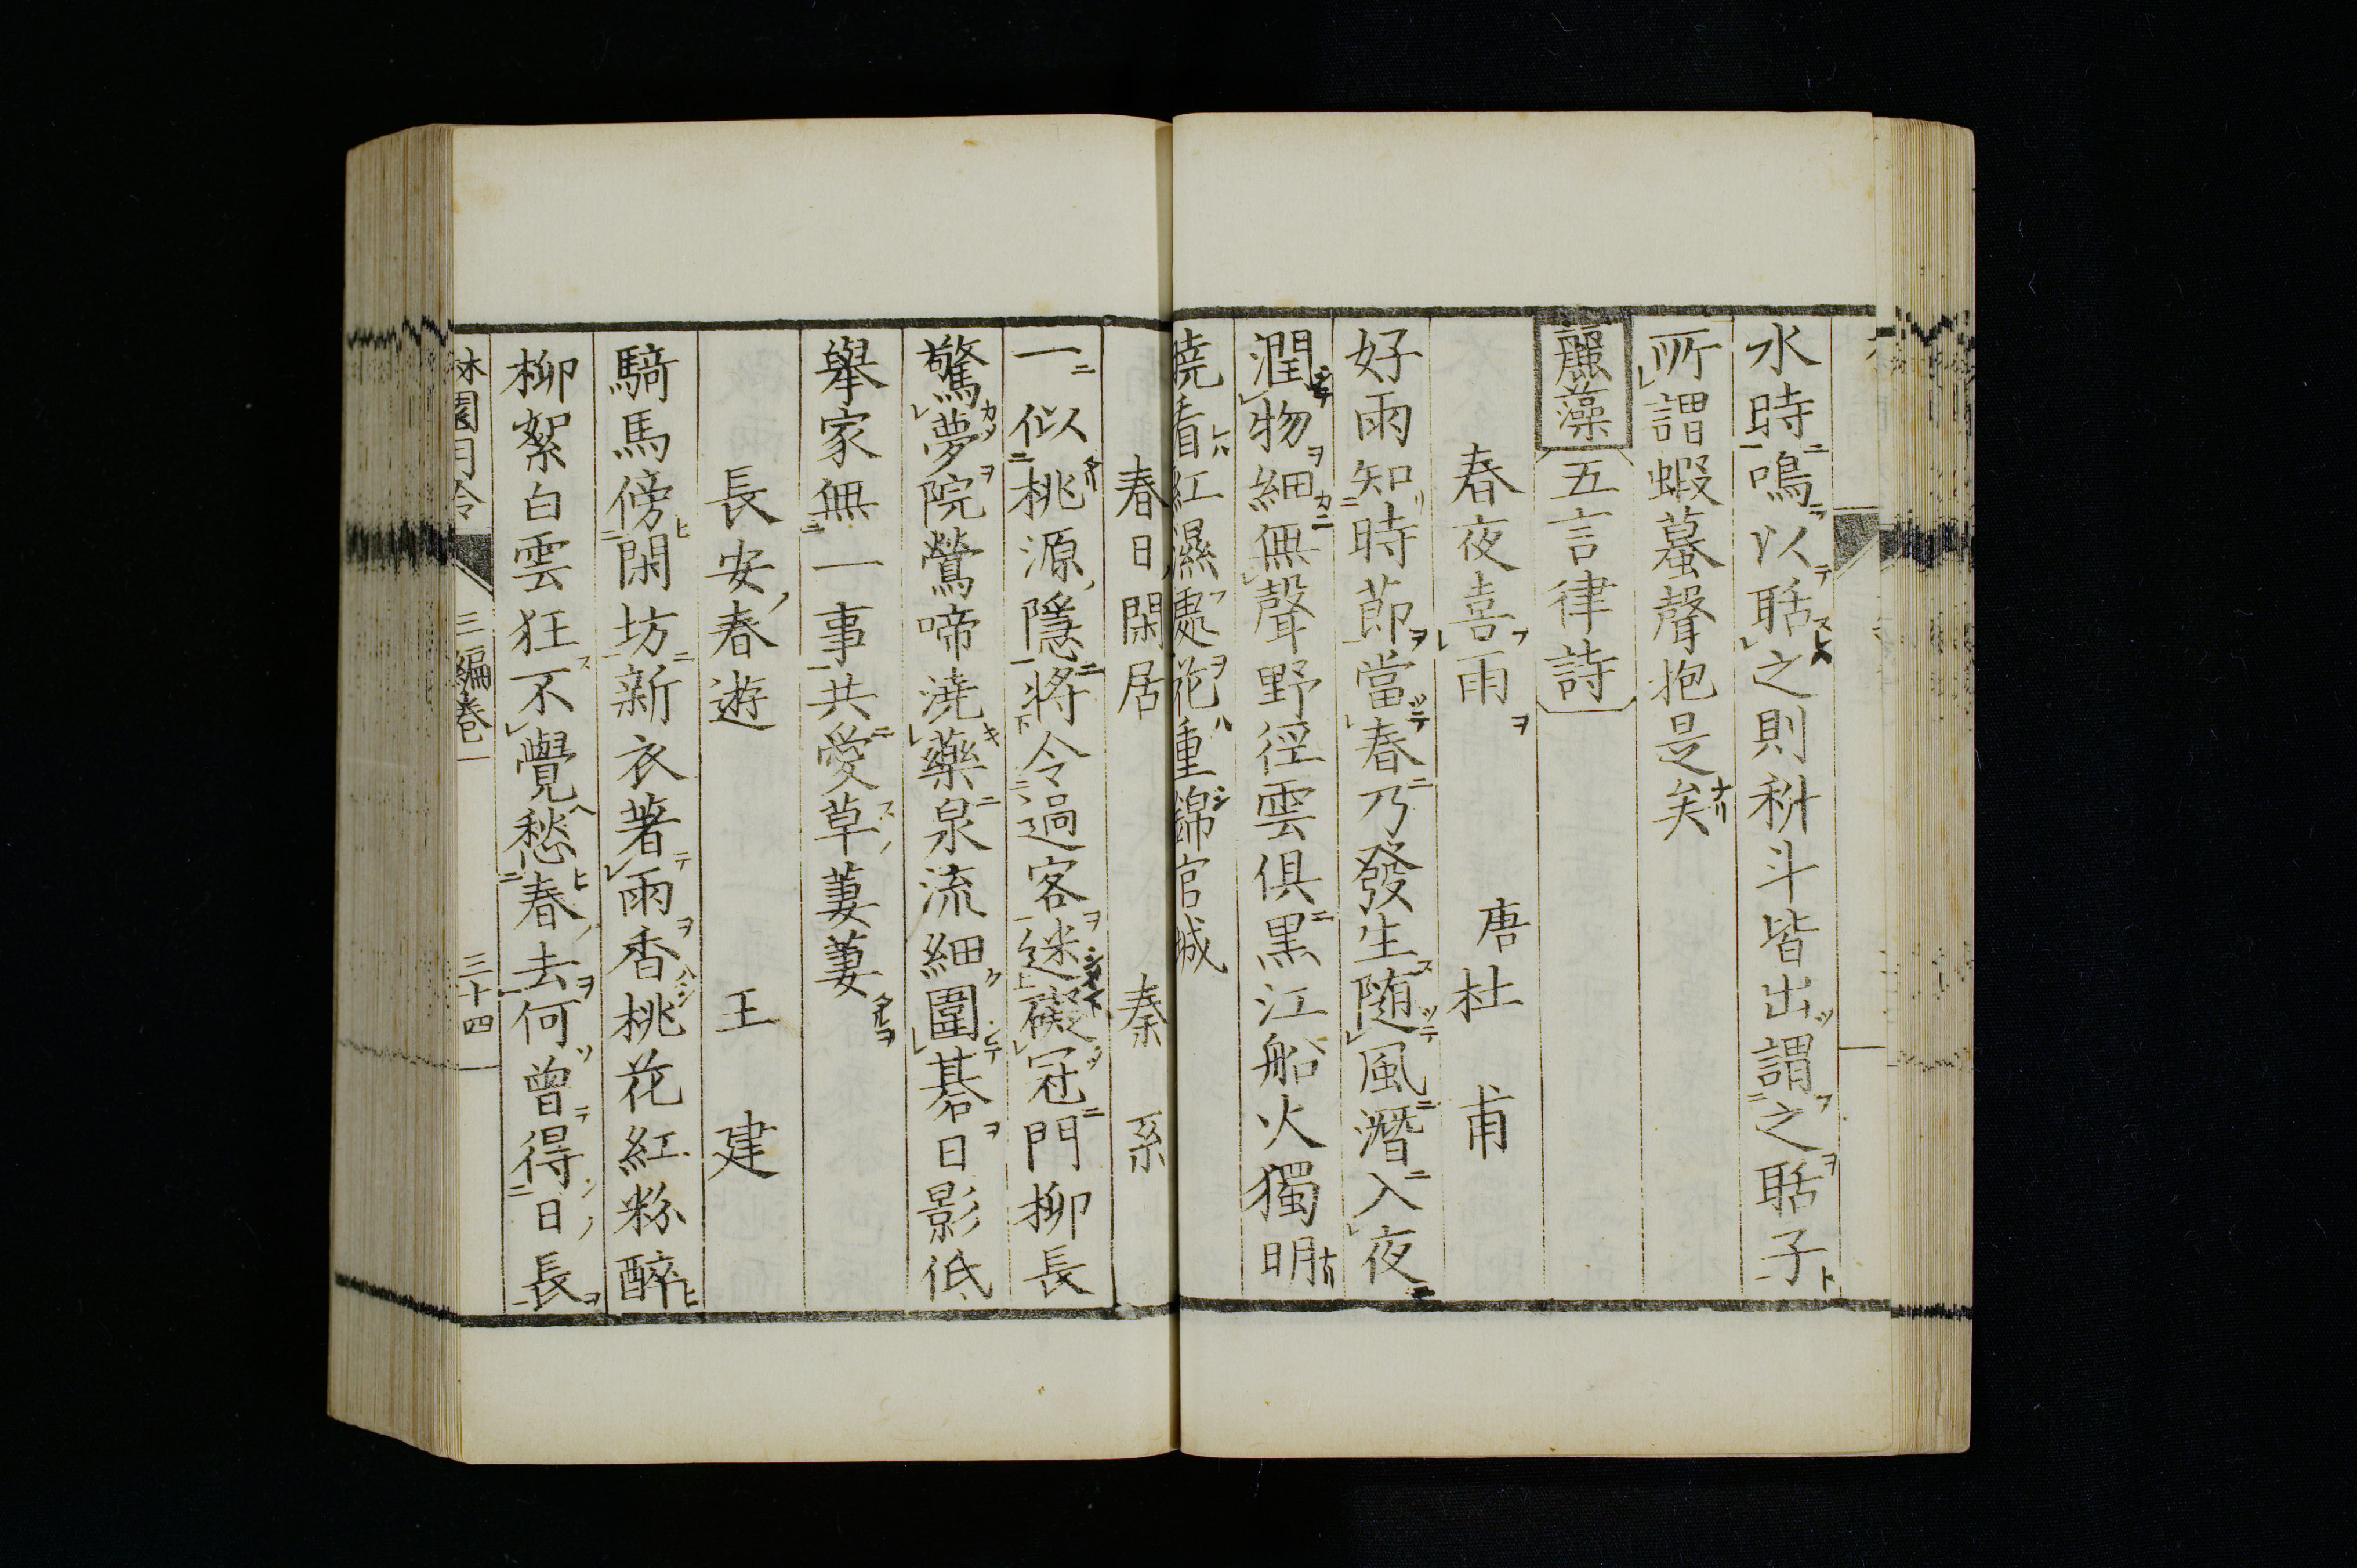 水時鳴以聒之則科斗皆出謂之聒子
所謂蝦蟇聲抱是矣
麗藻 五言律詩
春夜喜雨 唐杜甫
好雨知時節當春乃發生随風潛入夜
潤物細無聲野徑雲俱黒江船火獨明
曉看紅濕處花重錦官城
春日閑居 秦系
一似桃源隱將令過客迷礙冠門柳長
驚夢院鶯啼澆藥泉流細圍碁日影低
舉家無一事共愛草萋萋
長安春遊 王建
騎馬傍閑坊新衣著雨香桃花紅粉醉
柳絮白雲狂不覺愁春去何曾得日長
林園月令 三編卷一 三十四